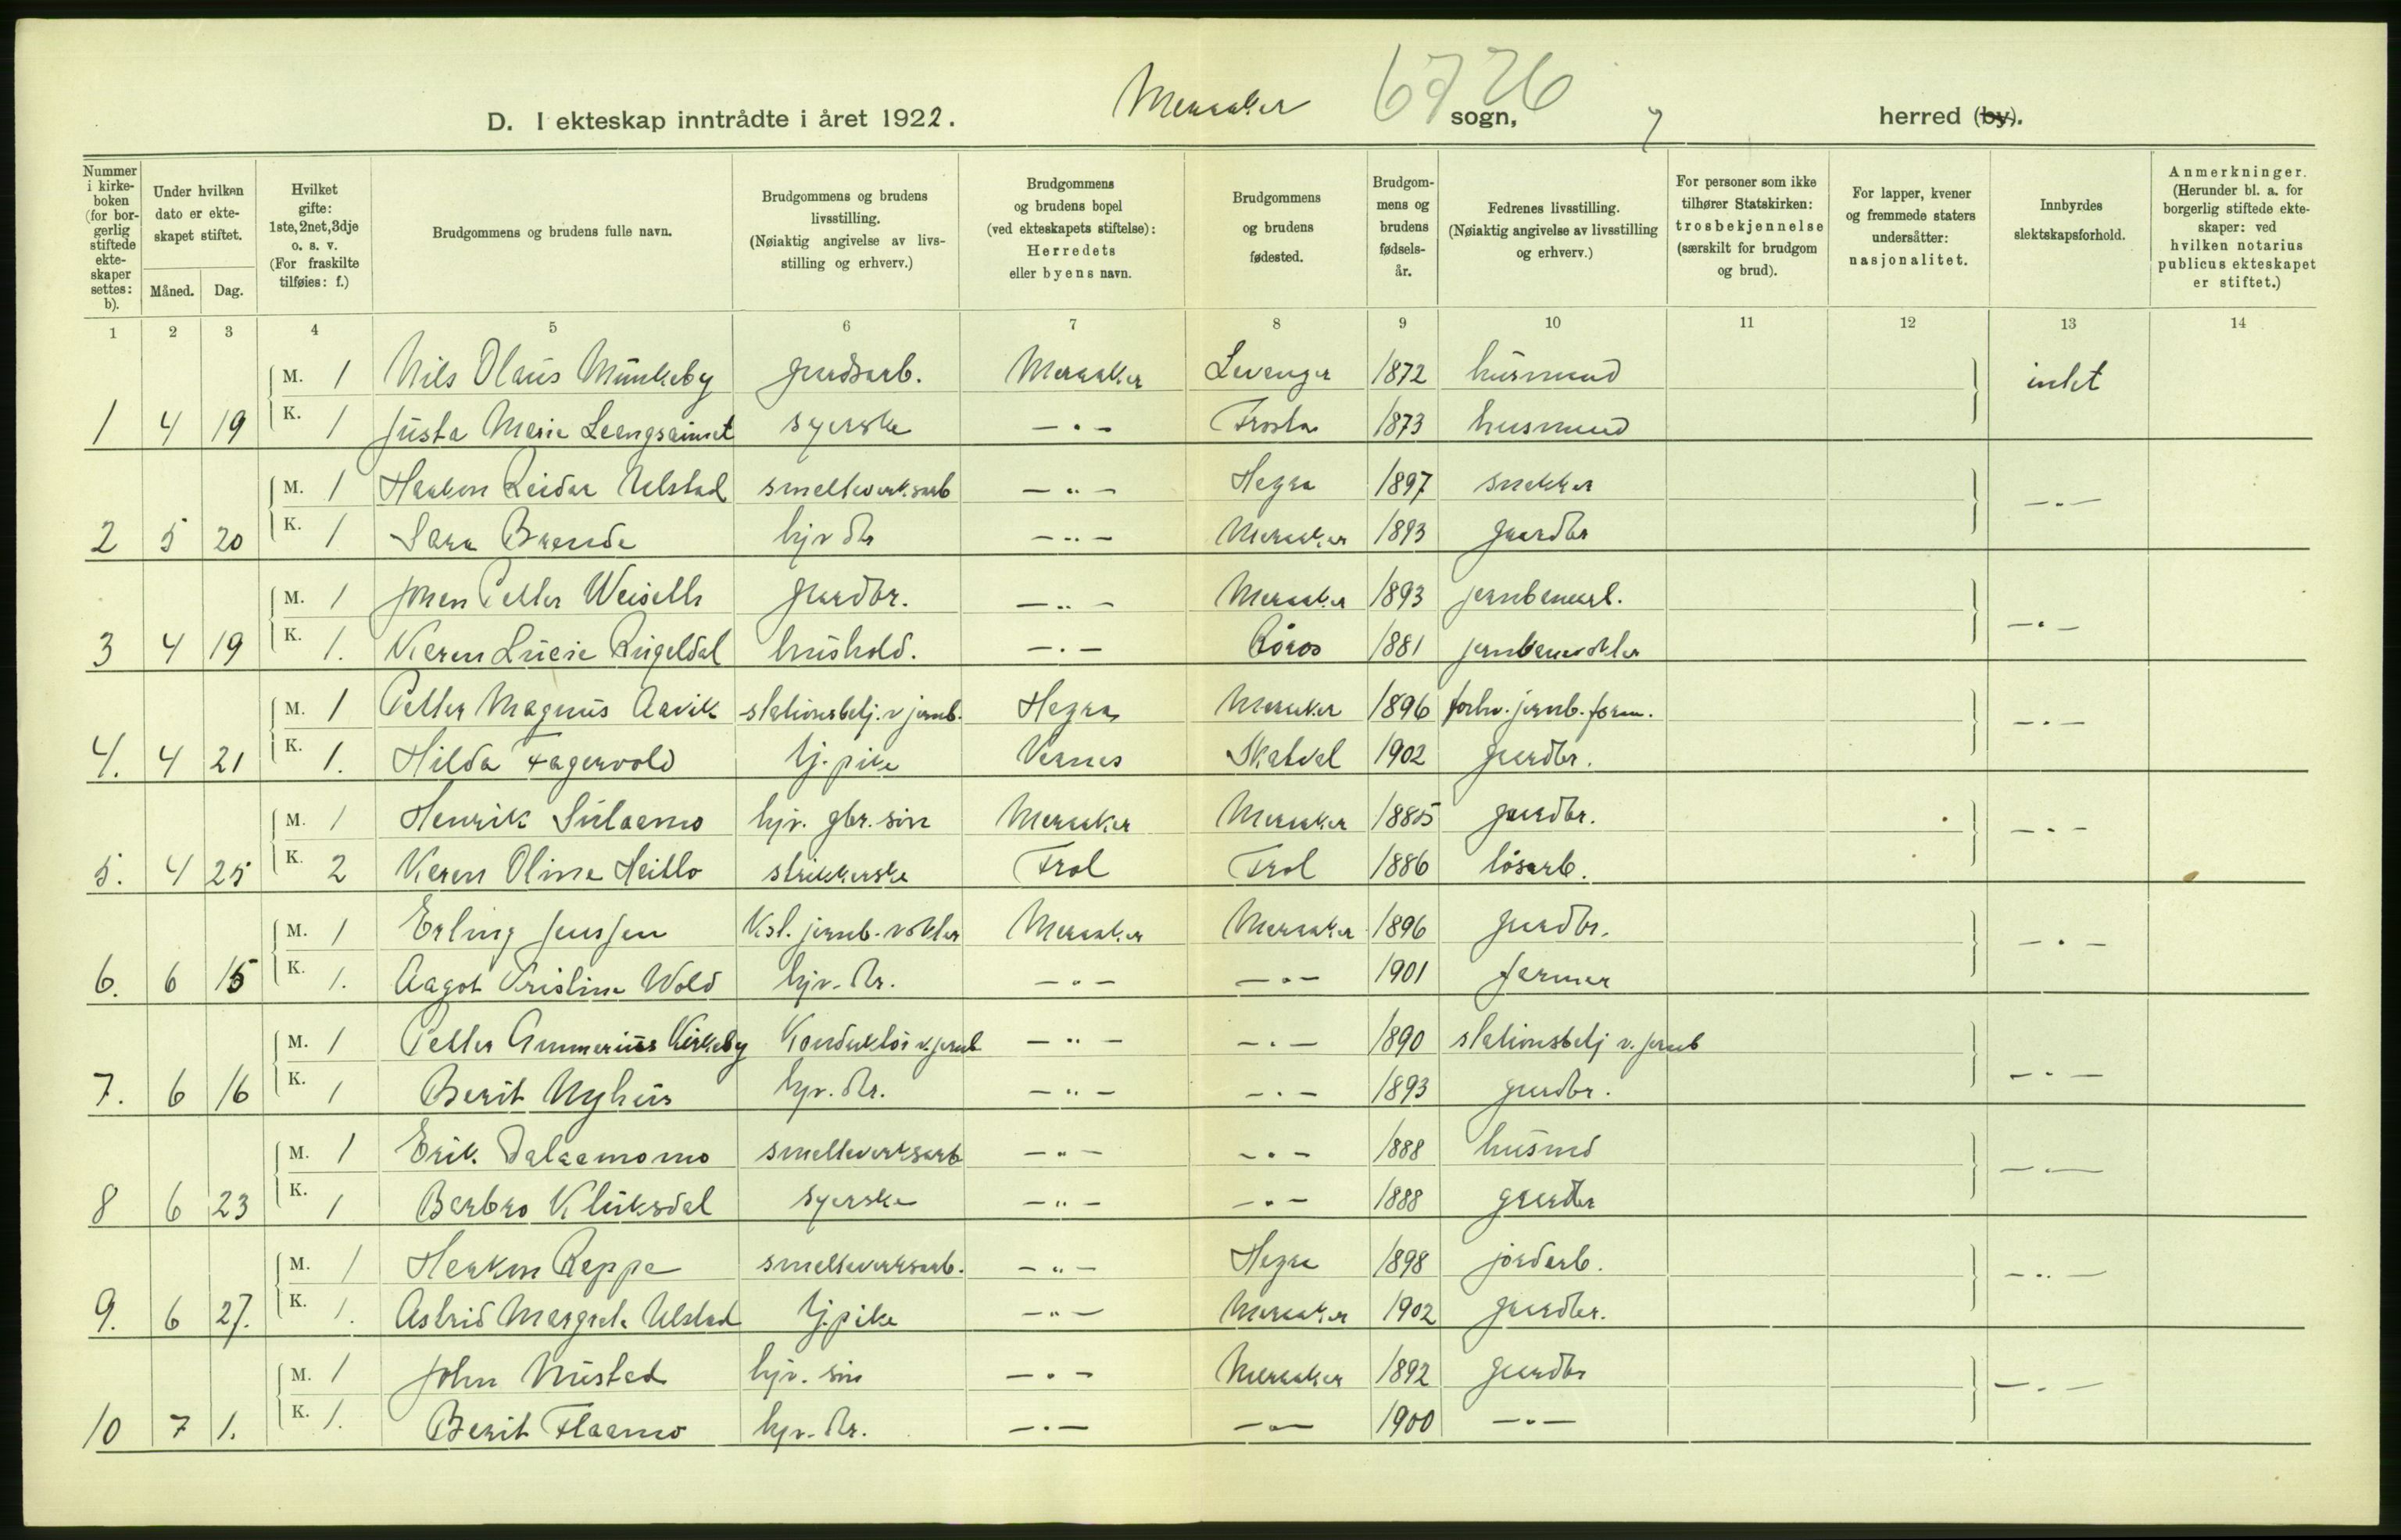 Meraaker 6726
D. I ekteskap inntrådte i året 1922. sogn, herred (by).
Nummer i kirkeboken (for borgerlig stiftede ekteskaper settes: b).
Under hvilken dato er ekteskapet stiftet.
Måned. Dag.
Hvilket gifte: 1ste, 2net, 3dje o. s. v. (For fraskilte tilføies: f.)
Brudgommens og brudens fulle navn.
Brudgommens og brudens livsstilling. (Nøiaktig angivelse av livsstilling og erhverv.)
Brudgommens og brudens bopel (ved ekteskapets stiftelse): Herredets eller byens navn.
Brudgommens og brudens fødested.
Brudgommens og brudens fødselsår.
Fedrenes livsstilling. (Nøiaktig angivelse av livsstilling og erhverv.)
For personer som ikke tilhører Statskirken: trosbekjennelse (særskilt for brudgom og brud).
For lapper, kvener og fremmede staters undersåtter: nasjonalitet.
Innbyrdes slektskapsforhold.
Anmerkninger. (Herunder bl. a. for borgerlig stiftede ekteskaper: ved hvilken notarius publicus ekteskapet er stiftet.)
1 2 3 4 5 6 7 8 9 10 11 12 13 14
M. 1 Nils Olaus Munkeby gardsarb. Meraaker Levanger 1872 husmand intet
1 4 19 K. 1 Justa Marie syerske — " — Frosta 1873 husmand
M. 1 Haakon Reidar Ulstad smelteverksarb — " — Hegra 1897 snekker — " —
2 5 20 K. 1 Sara Brende hjv dtr — " — Meraaker 1893 gaardbr
M. 1 Johan Petter Weiseth gaardbr. — " — Meraaker 1893 jernbanearb. — " —
3 4 19 K. 1. Karen Lucie Rugeldal hushold. — " — Røros 1881 jernbanevokter
M. 1 Petter Magnus Aavik stationsbetj. v jernb. Hegra Meraker 1896 forhv. jernb. form. — " —
4. 4 21 K. 1. Hilda Fagervold tj. pike Vernes Skatval 1902 gaardbr.
M. 1 Henrik Sulaamo hjv. gbr. søn Meraaker Meraaker 1885 gaardbr. — " —
5. 4 25 K. 2 Karen Oline Heitlo strikkerske Frol Frol 1886 løsarb.
M. 1 Erling Jensen Kst. jernb. vokter Meraaker Meraaker 1896 gaardbr. — " —
6. 6 15 K. 1. Aagot Kristine Wold hjv. dtr. — " — — " — 1901 farmer
M. 1 Petter Gunnerius Kirkeby Konduktør v. jernb — " — — " — 1890 stationsbetj v. jernb — " —
7. 6 16 K. 1 Berit Nyhus hjv. dtr. — " — — " — 1893 gaardbr.
M. 1 Erik Dalaamomo smelteverksarb — " — — " — 1888 husmd — " —
8 6 23 K. 1 Barbro Kluksdal syerske — " — — " — 1888 gaardbr
M. 1 Haakon Reppe smelteverksarb. — " — Hegra 1898 jordarb. — " —
9. 6 27. K. 1. Astrid Margrete Ulstad tj. pike — " — Meraaker 1902 gaardbr.
M. 1 John Nustad hjv. søn — " — Meraaker 1892 gaardbr — " —
10 7 1. K. 1. Berit Flaamo hjv. dtr. — " — — " — 1900 — " —